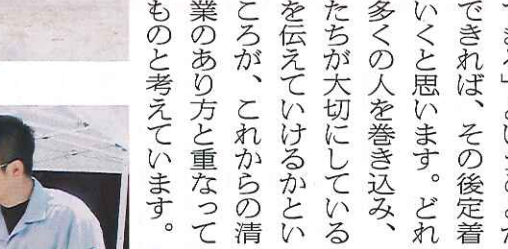 できれば、その後定着
いくと思います。どれ
多くの人を巻き込み、
たちが大切にしている
を伝えていけるかとい
ころが、これからの清
業のあり方と重なって
ものと考えています。